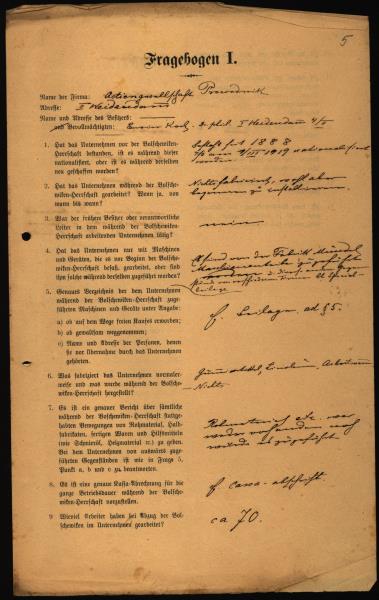 5
Fragebogen I.
Name der Firma: Actiengesellschaft Prowodnik
Adresse: II Weidendamm
Name und Adresse des Besitzers:
und Bevollmächtigten: phil. I Weidendam
1. Hat das Unternehmen vor der Bolschewiken-
Herrschaft bestanden, ist es während dieser
nationalisiert, oder ist es während derselben
neu geschaffen worden?
1888
1919 nationalisiert
worden
2. Hat das Unternehmen während der Bolsche-
wiken-Herrschaft gearbeitet? Wenn ja, von
wann bis wann?
Nicht fabriciert, noch aber
begonnen zu
3. War der frühere Besitzer oder verantwortliche
Leiter in dem während der Bolschewiken-
Herrschaft arbeitenden Unternehmen tätig?
nein
4. Hat das Unternehmen nur mit Maschinen
und Geräten, die es vor Beginn der Bolsche-
wiken-Herrschaft besaß, gearbeitet, oder sind
ihm solche während derselben zugeführt worden?
Es sind von der Fabrik
zugeführt
5. Genaues Verzeichnis der dem Unternehmen
während der Bolschewiken-Herrschaft zuge-
führten Maschinen und Geräte unter Angabe:
a) ob auf dem Wege freien Kaufes erworben;
b) ob gewaltsam weggenommen;
c) Name und Adresse der Personen, denen
sie vor Übernahme durch das Unternehmen
gehörten.
cf. Beilage ad § 5.
6. Was fabriziert das Unternehmen normaler-
weise und was wurde während der Bolsche-
wiken-Herrschaft hergestellt?
Linoleum,
Nichts
7. Es ist ein genauer Bericht über sämtliche
während der Bolschewiken-Herrschaft stattge-
habten Bewegungen von Rohmaterial, Halb-
fabrikaten, fertigen Waren und Hilfsmitteln
(wie Schmieröl, Heizmaterial rc.) zu geben.
Bei dem Unternehmen von auswärts zuge-
führten Gegenständen ist wie in Frage 5,
Punkt a, b und c zu beantworten.
Rohmaterial etc. war
weder vorhanden noch
wurde es zugeführt
8. Es ist eine genaue Kassa-Abrechnung für die
ganze Betriebsdauer während der Bolsche-
wiken-Herrschaft vorzustellen.
cf. Cassa-abschrift.
9 Wieviel Arbeiter haben bei Abzug der Bol-
schewiken im Unternehmen gearbeitet?
ca 70.